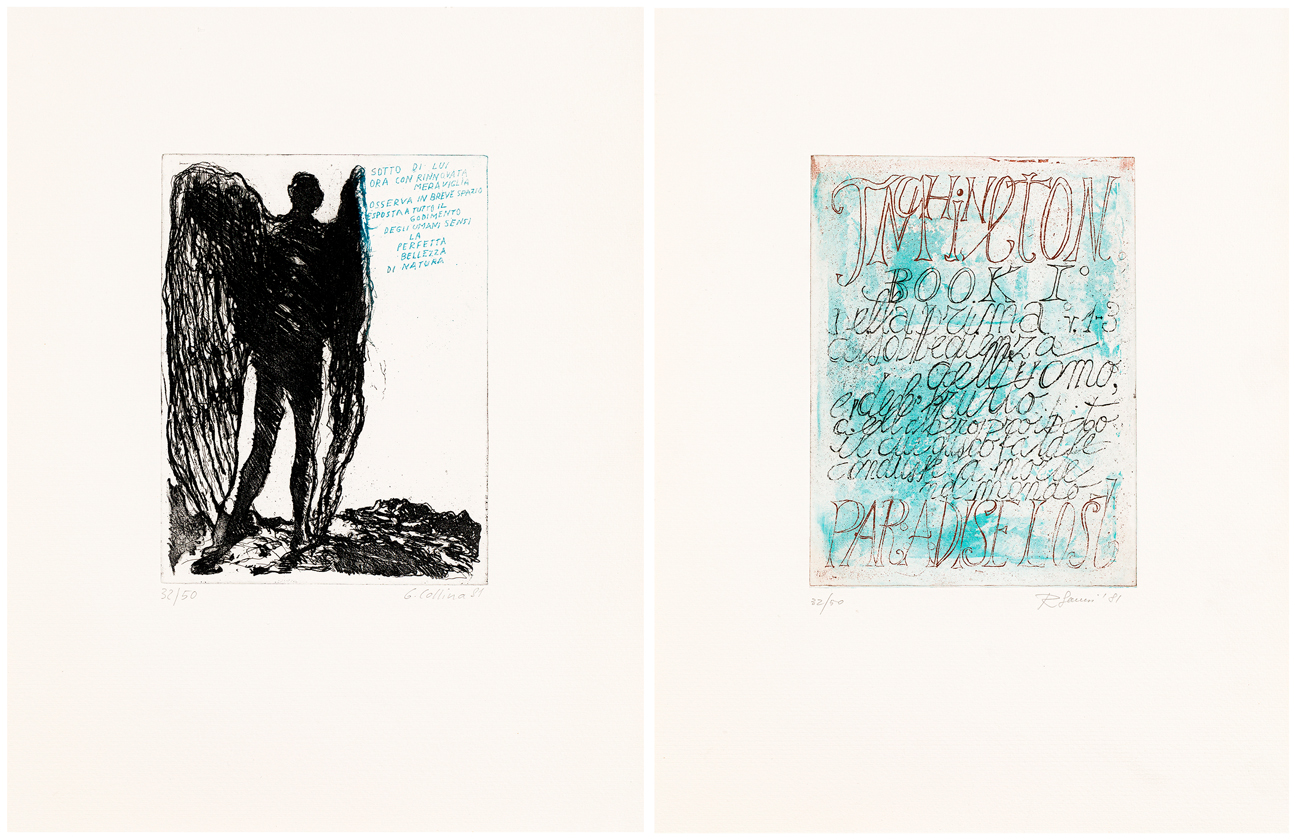 SOTTO DI LUI
ORA CON RINNOVATA
MERAVIGLIA
OSSERVA IN BREVE SPAZIO
ESPOSTA A TUTTO IL
GODIMENTO
DEGLI UMANI SENSI
LA
PERFETTA
BELLEZZA
DI NATURA
32/50
G. Collina 81
BOOK I°
della prima v. 1-3
disobbedienza
dell'uomo,
e del frutto
il cui gusto fatale
condusse la morte
nel mondo
PARADISE LOST
32/50
'81